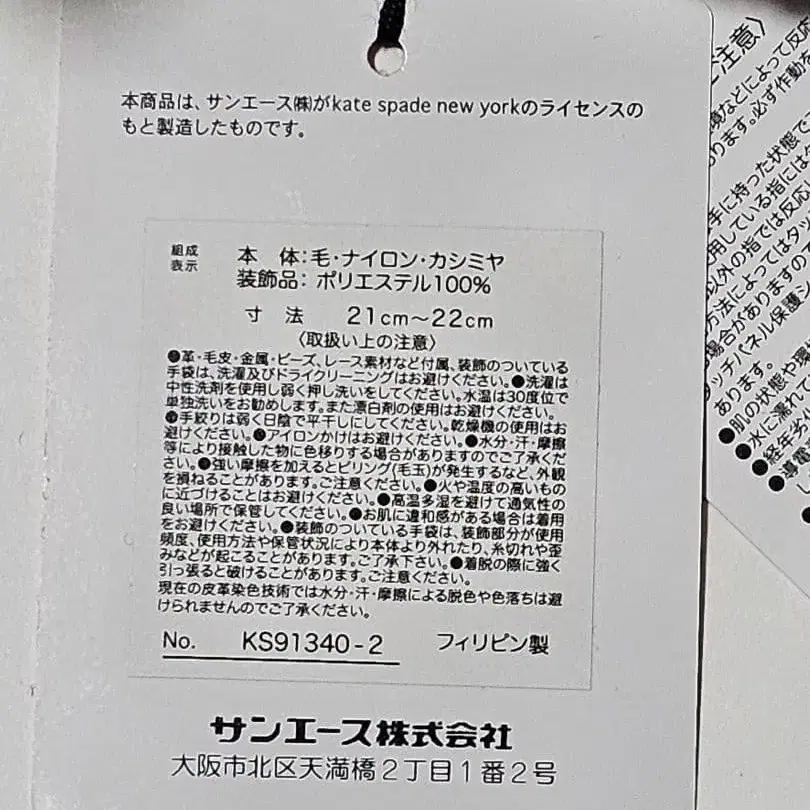 本商品は、サンエース㈱がkate spade new yorkのライセンスの
もと製造したものです。
組成
表示
本 体：毛・ナイロン・カシミヤ
装飾品：ポリエステル100%
寸 法 21cm～22cm
〈取扱い上の注意〉
●革・毛皮・金属・ビーズ、レース素材など付属、装飾のついている
手袋は、洗濯及びドライクリーニングはお避けください。●洗濯は
中性洗剤を使用し弱く押し洗いをしてください。水温は30度位で
単独洗いをお勧めします。また漂白剤の使用はお避けください。
●手絞りは弱く日陰で平干しにしてください。乾燥機の使用はお
避けください。●アイロンかけはお避けください。●水分・汗・摩擦
等により接触した物に色移りする場合がありますのでご了承くだ
さい。●強い摩擦を加えるとピリング(毛玉)が発生するなど、外観
を損ねることがあります。ご注意ください。●火や温度の高いもの
に近づけることはお避けください。●高温多湿を避けて通気性の
良い場所で保管してください。●お肌に違和感がある場合は着用
をお避けください。●装飾のついている手袋は、装飾部分が使用
頻度、使用方法や保管状況により本体より外れたり、糸切れや歪
みなどが起こることがあります。ご了承下さい。●着脱の際に強く
引っ張ると破けることがあります。ご注意ください。
現在の皮革染色技術では水分・汗・摩擦による脱色や色落ちは避
けられませんのでご了承ください。
No. KS91340-2 フィリピン製
サンエース株式会社
大阪市北区天満橋2丁目1番2号
注意〉
などによって反応
ります。必ず作動を
手に持った状態で
用している指には
以外の指では反応
方法によってはタッ
場合がありますので
ッチパネル保護シ
あります。
●肌の状態や環境
●水に濡れて
●経年劣
●導電